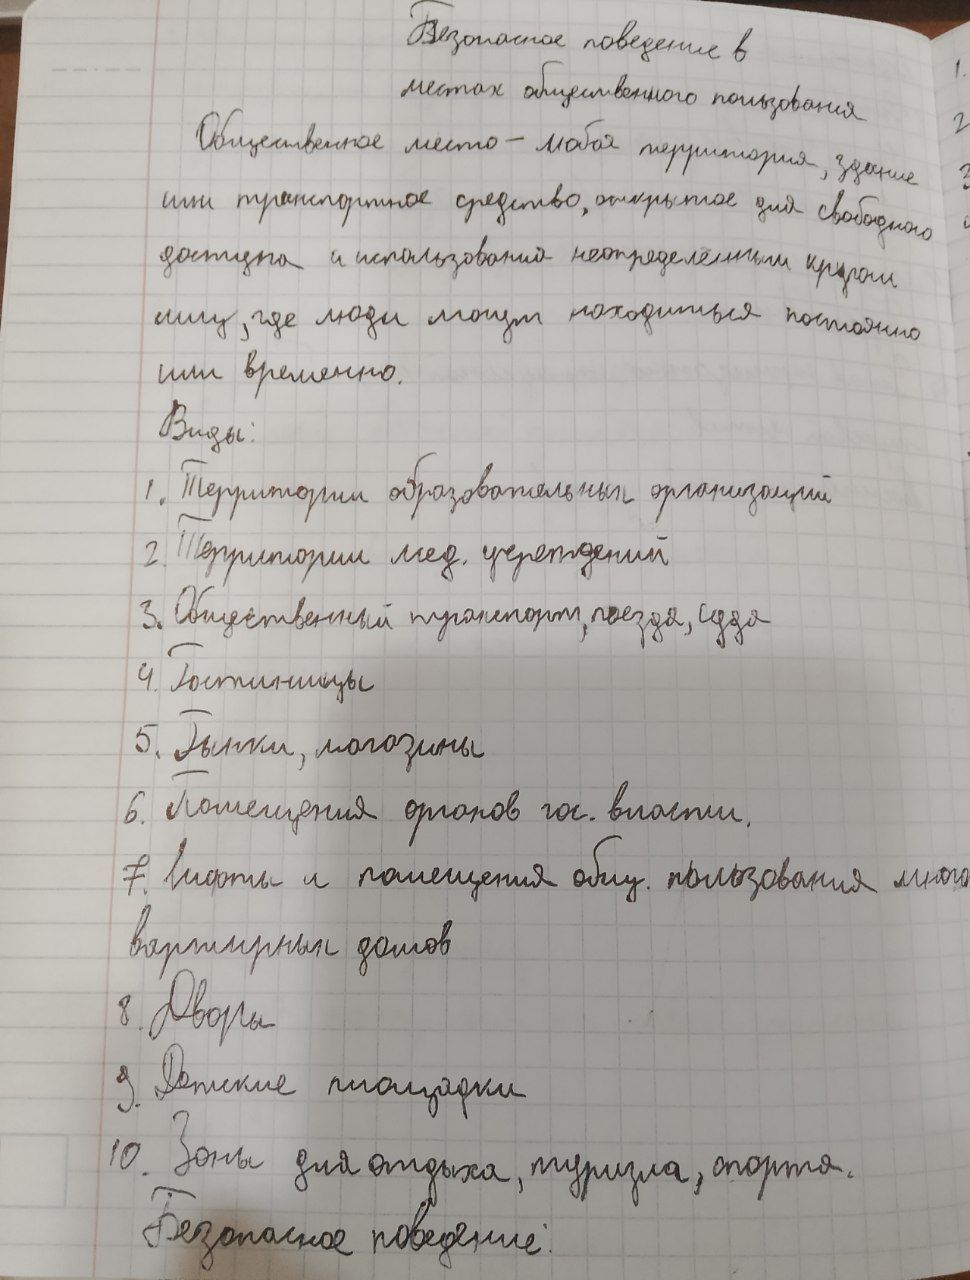 Безопасное поведение в
местах общественного пользования
Общественное место – любая территория, здание
или транспортное средство, открытое для свободного
доступа и использования неопределённым кругом
лиц, где люди могут находиться постоянно
или временно.
Виды:
1. Территории образовательных организаций
2. Территории мед. учреждений
3. Общественный транспорт, поезда, суда
4. Гостиницы
5. Рынки, магазины
6. Помещения органов гос. власти.
7. Лифты и помещения общ. пользования много
квартирных домов
8. Дворы
9. Детские площадки
10. Зоны для отдыха, туризма, спорта.
Безопасное поведение:
1.
2
3